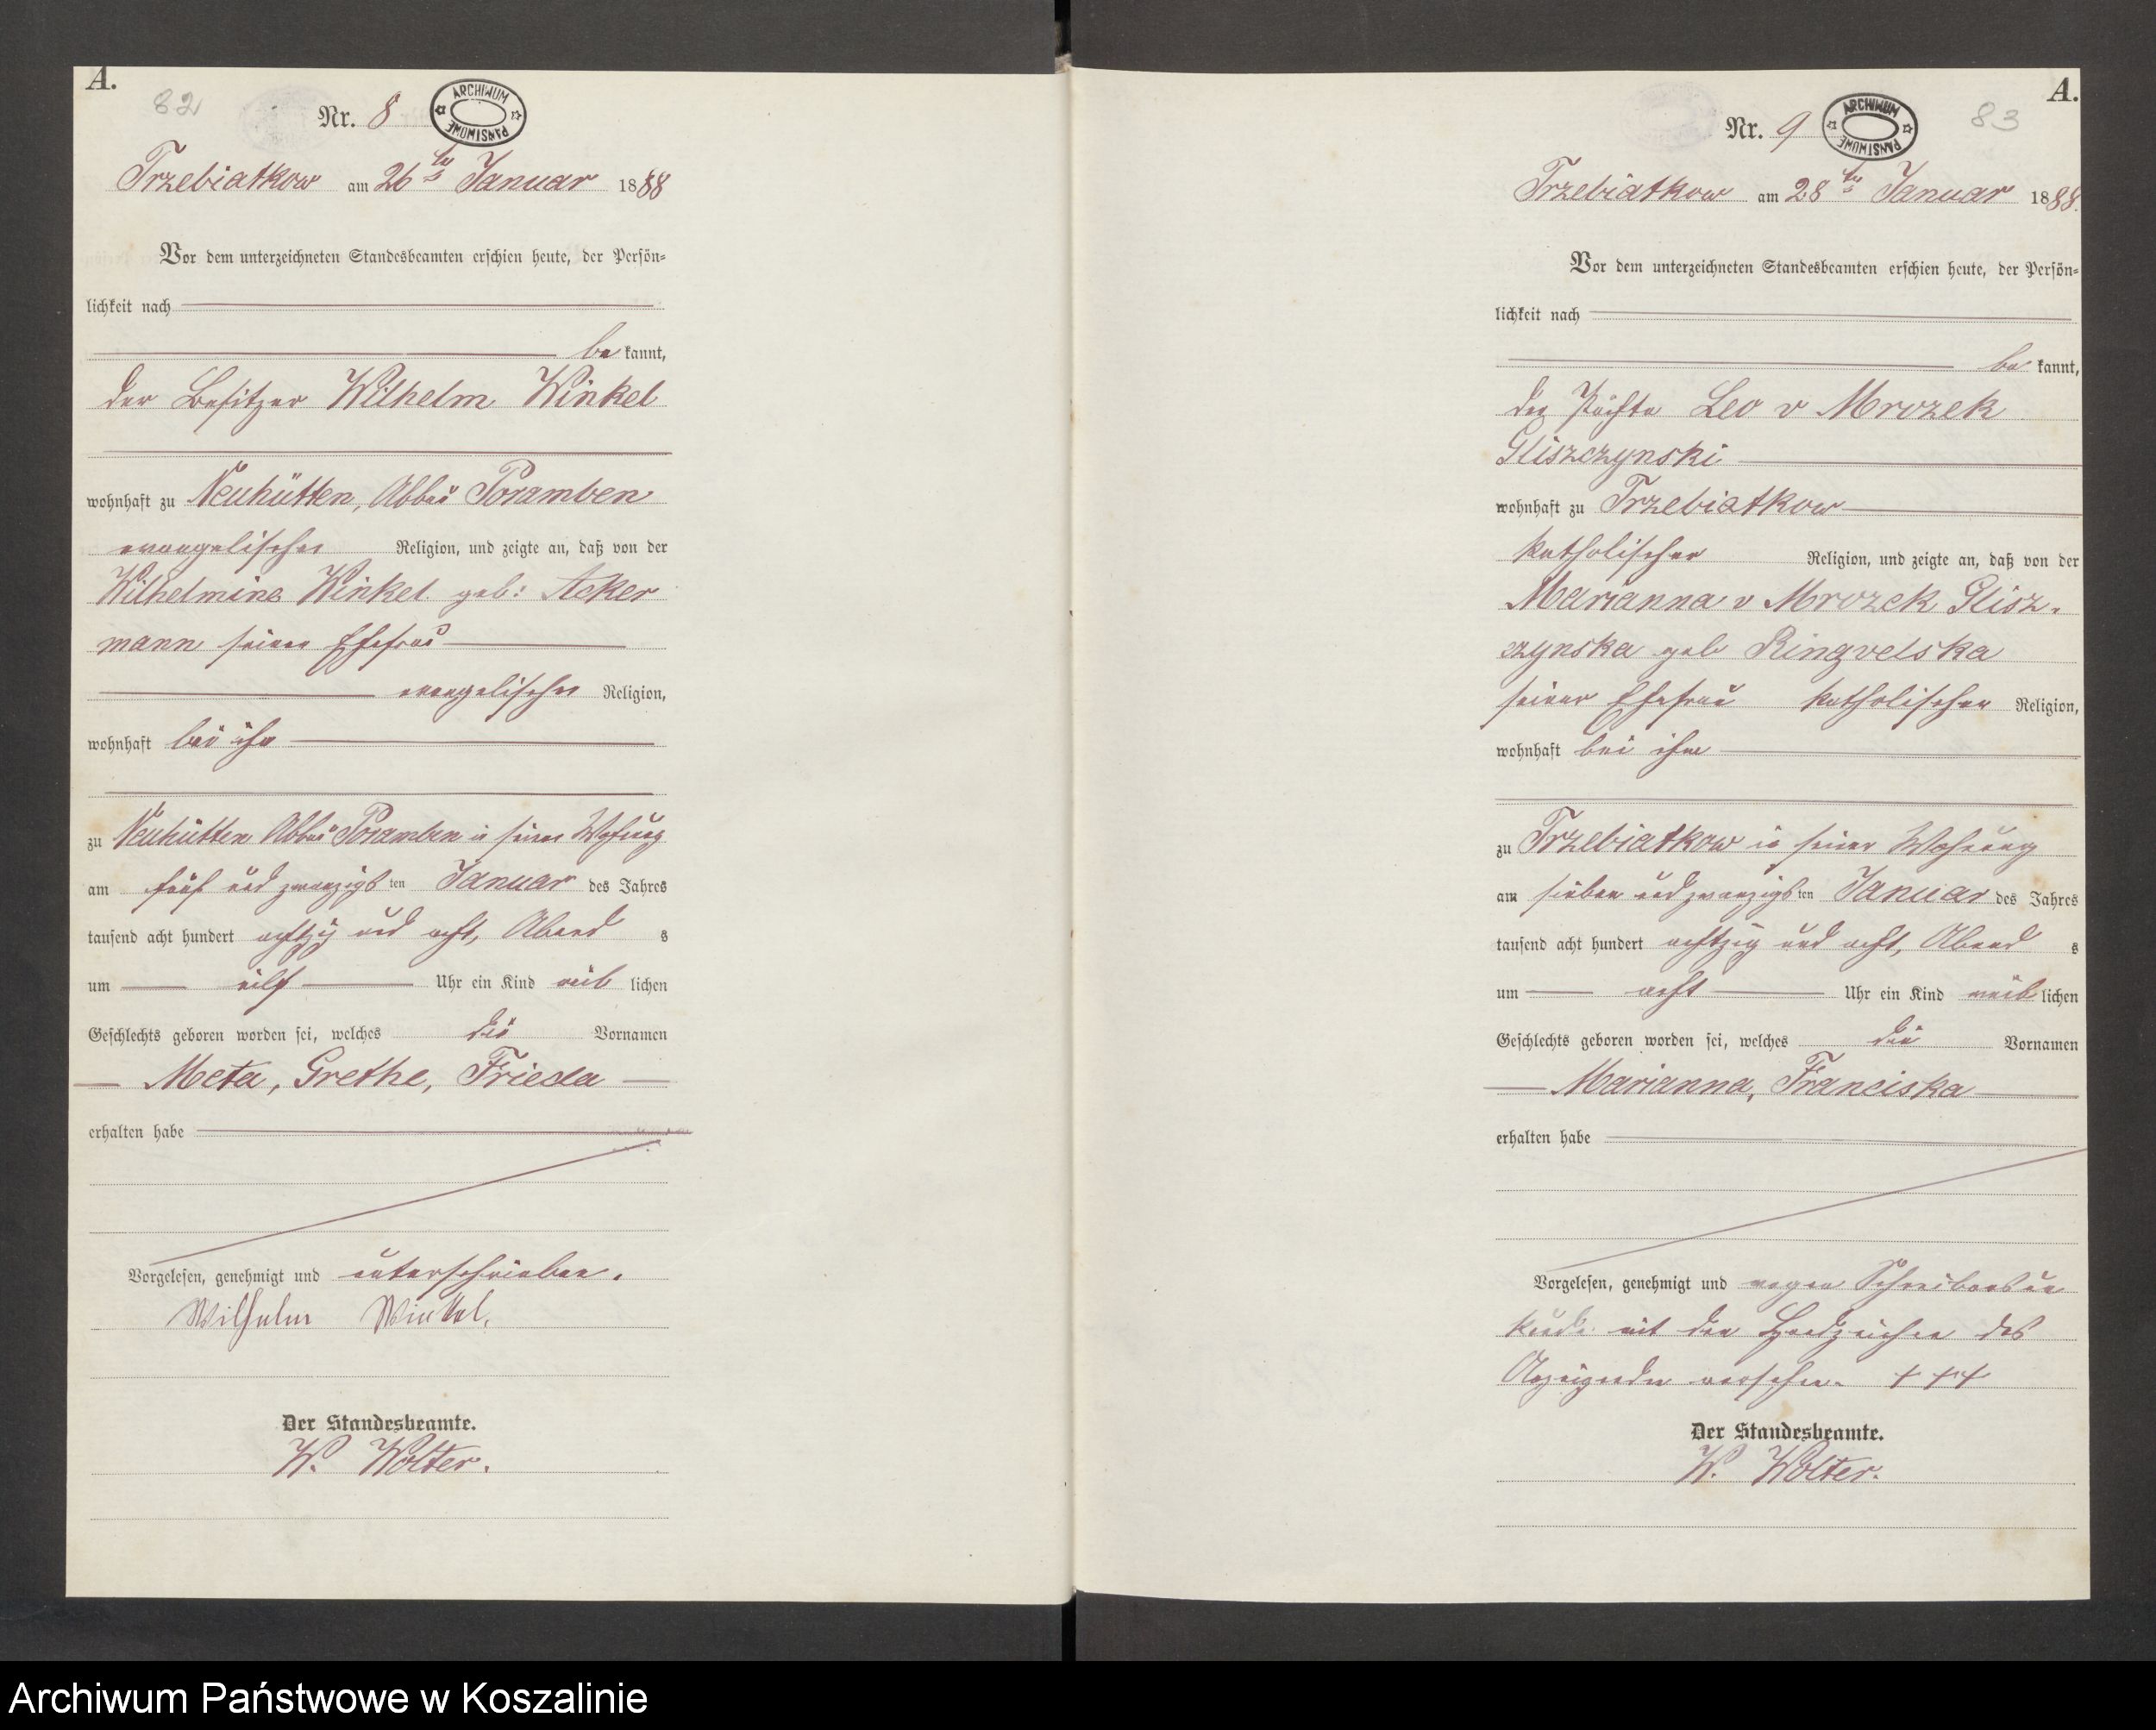 A.
82
Nr. 8
ARCHIWUM PAŃSTWOWE
Trzebiatkow am 26ten Januar 1888
Vor dem unterzeichneten Standesbeamten erschien heute, der Persön-
lichkeit nach
be kannt,
der Besitzer Wilhelm Winkel
wohnhaft zu Neuhütten, Abbau Poramben
evangelischer Religion, und zeigte an, daß von der
Wilhelmine Winkel geb: Acker
mann seiner Ehefrau
evangelischer Religion,
wohnhaft bei ihm
zu Neuhütten Abbau Poramben in seiner Wohnung
am fünf und zwanzigsten Januar des Jahres
tausend acht hundert achtzig und acht, Abend s
um eilf Uhr ein Kind weib lichen
Geschlechts geboren worden sei, welches die Vornamen
Meta, Grethe, Frieda
erhalten habe
Vorgelesen, genehmigt und unterschrieben.
Wilhelm Winkel.
Der Standesbeamte.
W. Wolter.
A.
83
Nr. 9
ARCHIWUM PAŃSTWOWE
Trzebiatkow am 28ten Januar 1888.
Vor dem unterzeichneten Standesbeamten erschien heute, der Persön-
lichkeit nach
be kannt,
der Pächter Leo v Mrozek
Gliszczynski
wohnhaft zu Trzebiatkow
katholischer Religion, und zeigte an, daß von der
Marianna v Mrozek Glisz-
czynska geb Ringvelska
seiner Ehefrau katholischer Religion,
wohnhaft bei ihm
zu Trzebiatkow in seiner Wohnung
am sieben und zwanzigsten Januar des Jahres
tausend acht hundert achtzig und acht, Abend s
um acht Uhr ein Kind weib lichen
Geschlechts geboren worden sei, welches die Vornamen
Marianna, Franciska
erhalten habe
Vorgelesen, genehmigt und wegen Schreibensun
kunde mit den Handzeichen des
Anzeigenden versehen. +++
Der Standesbeamte.
W. Wolter.
Archiwum Państwowe w Koszalinie